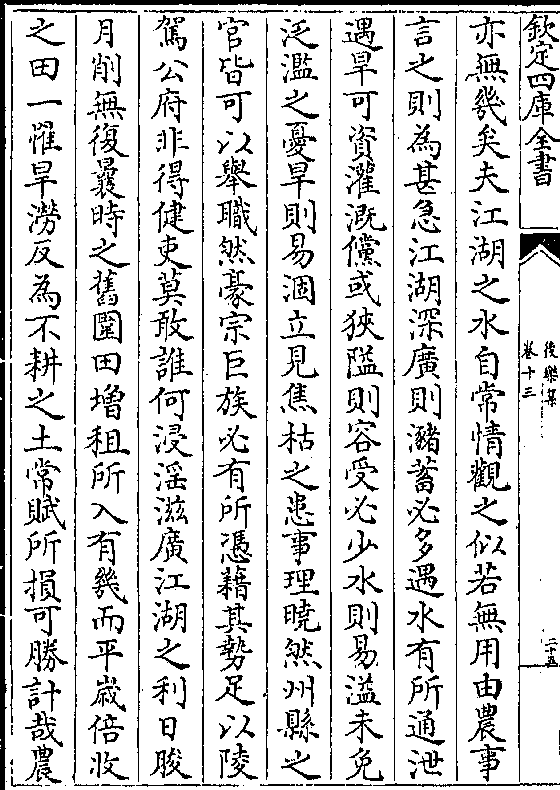 欽定四庫全書
後樂集
卷十三
二十五
亦無幾矣夫江湖之水自常情觀之似若無用由農事
言之則為甚急江湖深廣則瀦蓄必多遇水有所通泄
遇旱可資灌溉儻或狹隘則容受必少水則易溢未免
泛濫之憂旱則易涸立見焦枯之患事理曉然州縣之
官皆可以舉職然豪宗巨族必有所憑藉其勢足以陵
駕公府非得健吏莫敢誰何浸淫滋廣江湖之利日朘
月削無復曩時之舊圍田增租所入有幾而平嵗倍收
之田一罹旱澇反為不耕之土常賦所損可勝計哉農